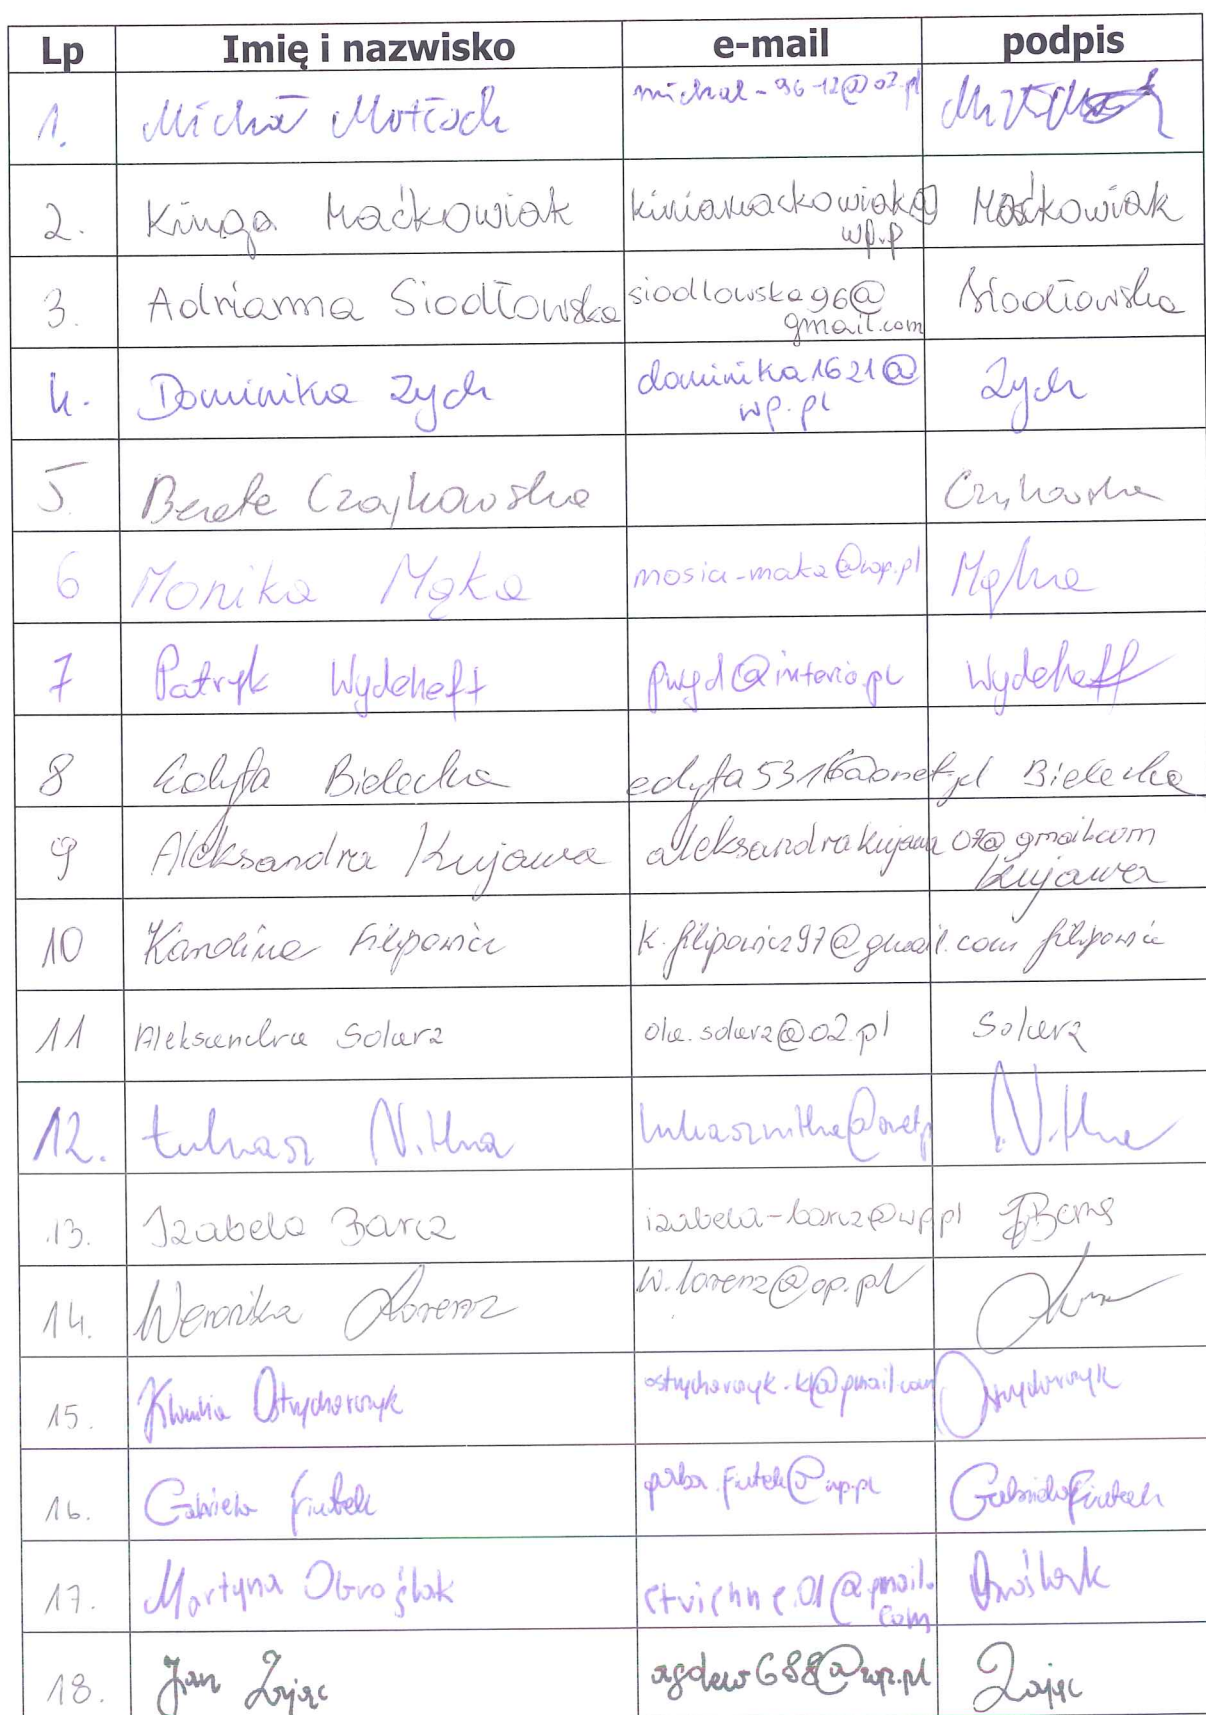 Lp Imię i nazwisko e-mail podpis
1. Michał michal-96-12@o2.pl
2. Kinga Maćkowiak kiniamackowiak@ Maćkowiak
wp.p
3. Adrianna Siodłowska siodlowska96@ Siodłowska
gmail.com
4. Dominika Zych dominika1621@ Zych
wp.pl
5. Beata Czajkowska Czajkowska
6 Monika Mąka mosia-maka@wp.pl Mąka
7 Patryk Wydeheft pwyd@interia.pl Wydeheff
8 Edyta Bielecka edyta5316@onet.pl Bielecka
9 Aleksandra Kujawa aleksandrakujawa07@gmail.com
Kujawa
10 Karolina Filipowicz k.filipowicz97@gmail.com Filipowicz
11 Aleksandra Solarz ola.solarz@o2.pl Solarz
12. Łukasz Nitka lukasznitka@onet.p Nitka
13. Izabela Barcz izabela-barcz@wp.pl
14. Weronika Lorenz w.lorenz@op.pl
15. Klaudia Ostrycharczyk ostrycharczyk.k@gmail.com Ostrycharczyk
16. Gabriela Fiutek gaba.fiutek@wp.pl Gabriela Fiutek
17. Martyna Obroślak @gmail. Obroślak
com
18. Jan Zając @wp.pl Zając